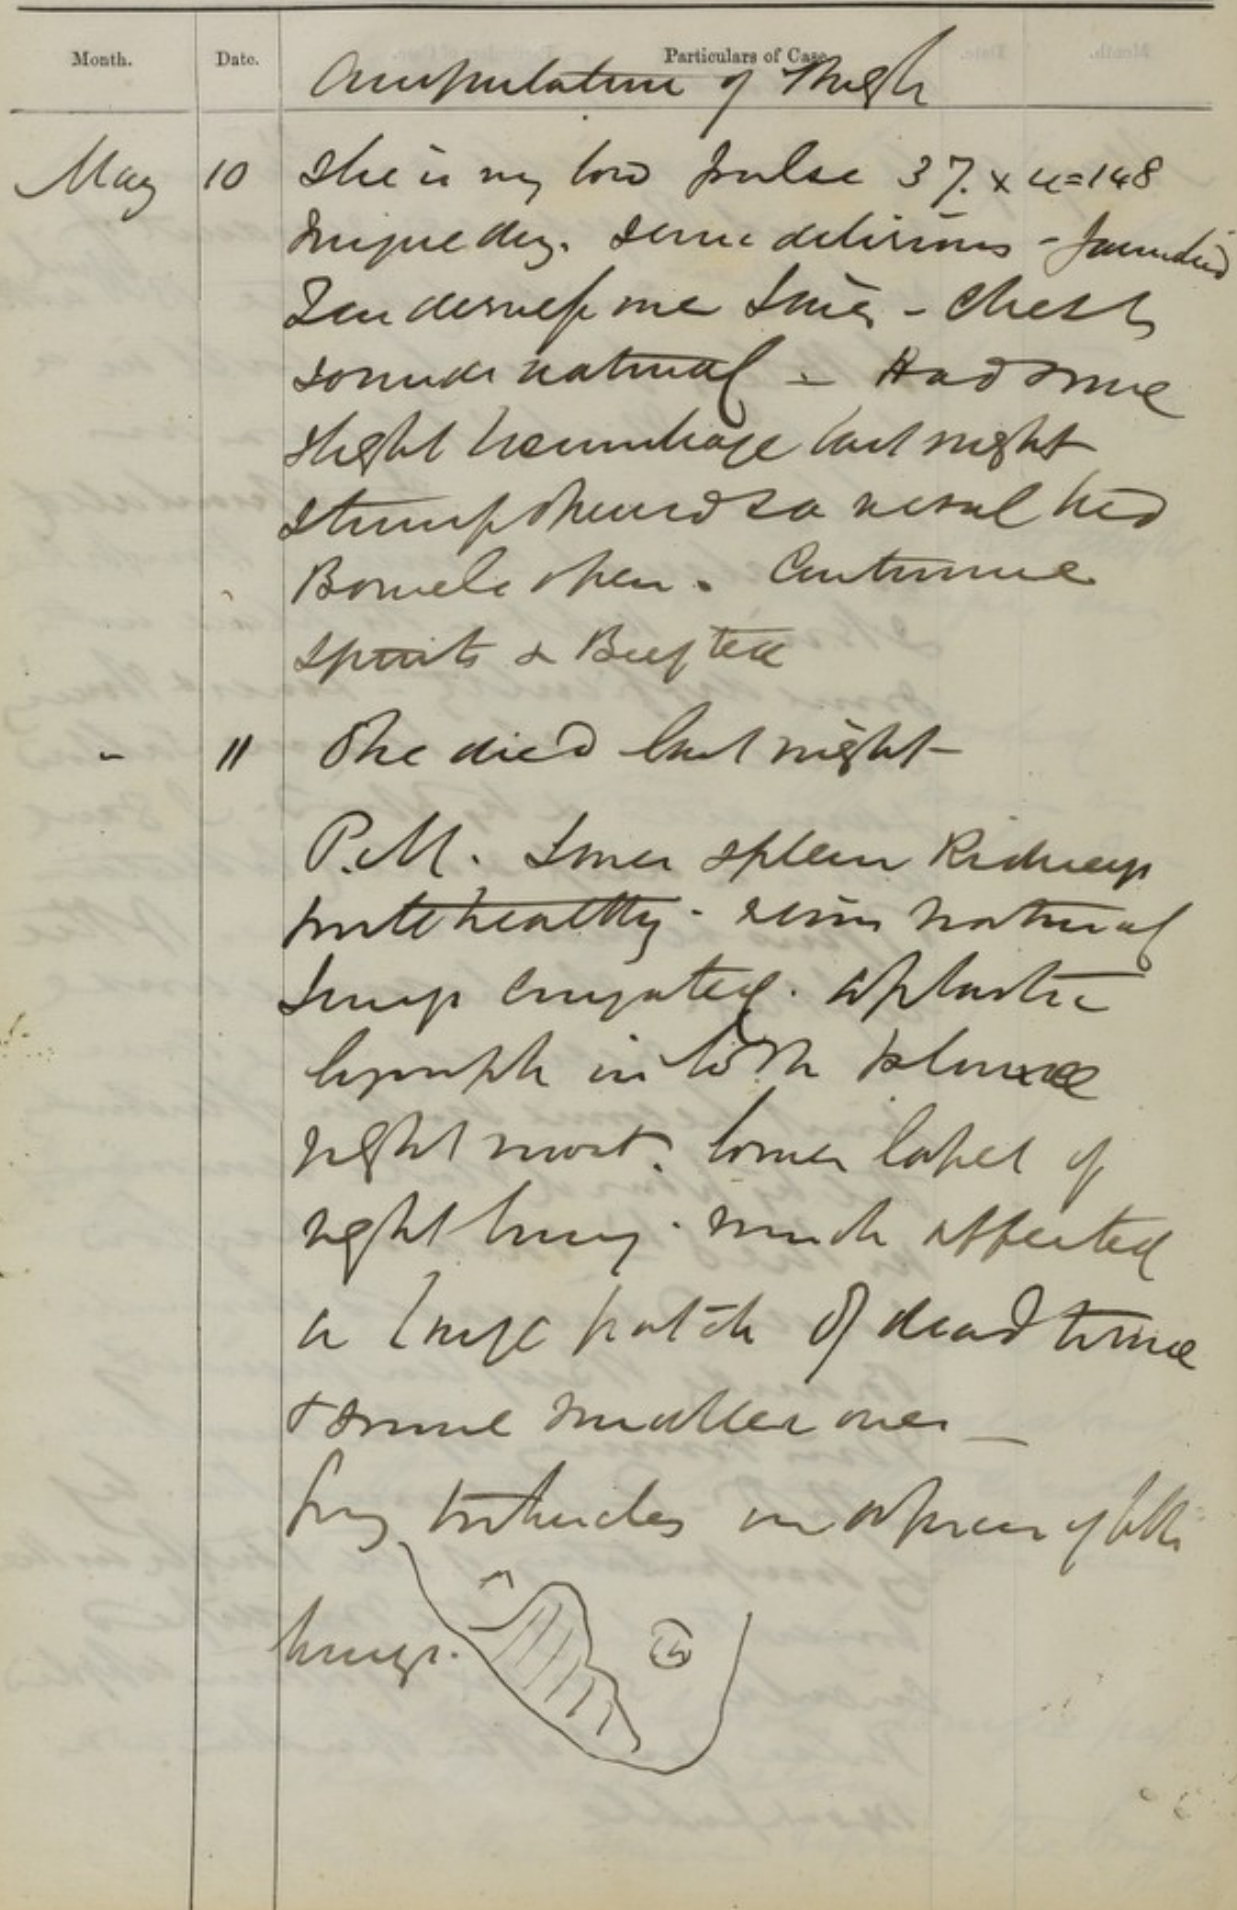 Month. Date. Particulars of Case
Amputation of Thigh
May 10 She is very low pulse 37. x 4=148
tongue dry. Some delirious - Jaundiced
Tenderness over Liver - Chest
sounds natural - Had some
slight hemorrhage last night
Stump dressed so a vessel tied
Bowels open. Continue
spirits & Beef tea
" 11 She died last night
P.M. Liver spleen Kidneys
quite healthy - veins natural
Lungs congested. aplastic
lymph in both pleurae
right most. lower lobe of
right lung. much affected
a large patch of dead tissue
& some smaller ones
tubercles in apices of both
lungs.